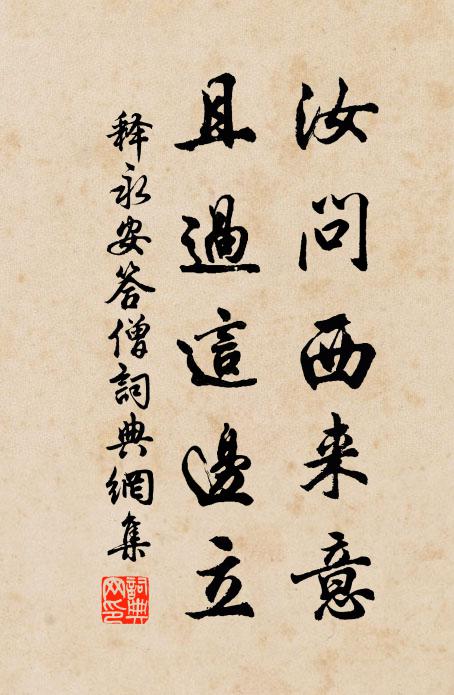 汝问西来意
且過這邊立
释永安答僧詞典網集
詞典網印